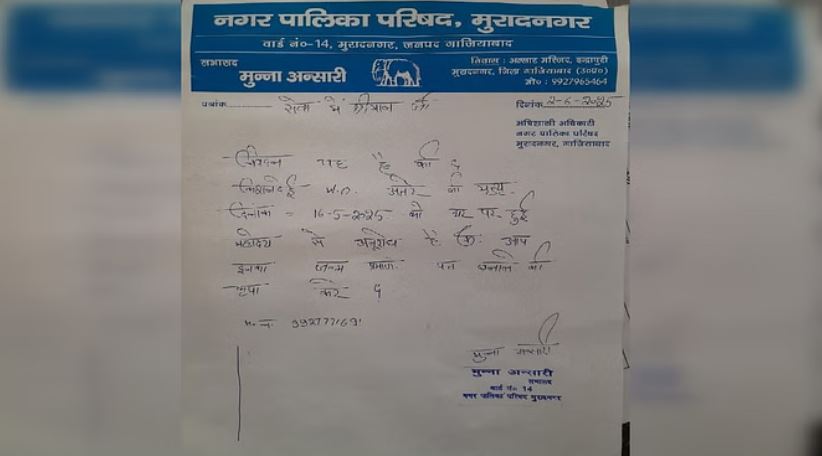 नगर पालिका परिषद, मुरादनगर
वार्ड नं०-14, मुरादनगर, जनपद गाजियाबाद
सभासद
मुन्ना अन्सारी
निवास : अल्साह मस्जिद, ईदगाहपुरी
मुरादनगर, जिला गाजियाबाद (उ०प्र०)
मो० : 9927965464
पत्रांक
सेवा में श्रीमान जी
दिनांक 2-6-2025
अधिशासी अधिकारी
नगर पालिका परिषद
मुरादनगर, गाजियाबाद
निवेदन यह है की
W.O. की मृत्यु
दिनांक = 16-5-2025 को घर पर हुई
महोदय से अनुरोध है कि आप
इनका जन्म प्रमाण पत्र बनाने की
कृपा करे
मो. नं. 9927771691
मुन्ना अन्सारी
मुन्ना अन्सारी
सभासद
वार्ड नं० 14
नगर पालिका परिषद मुरादनगर